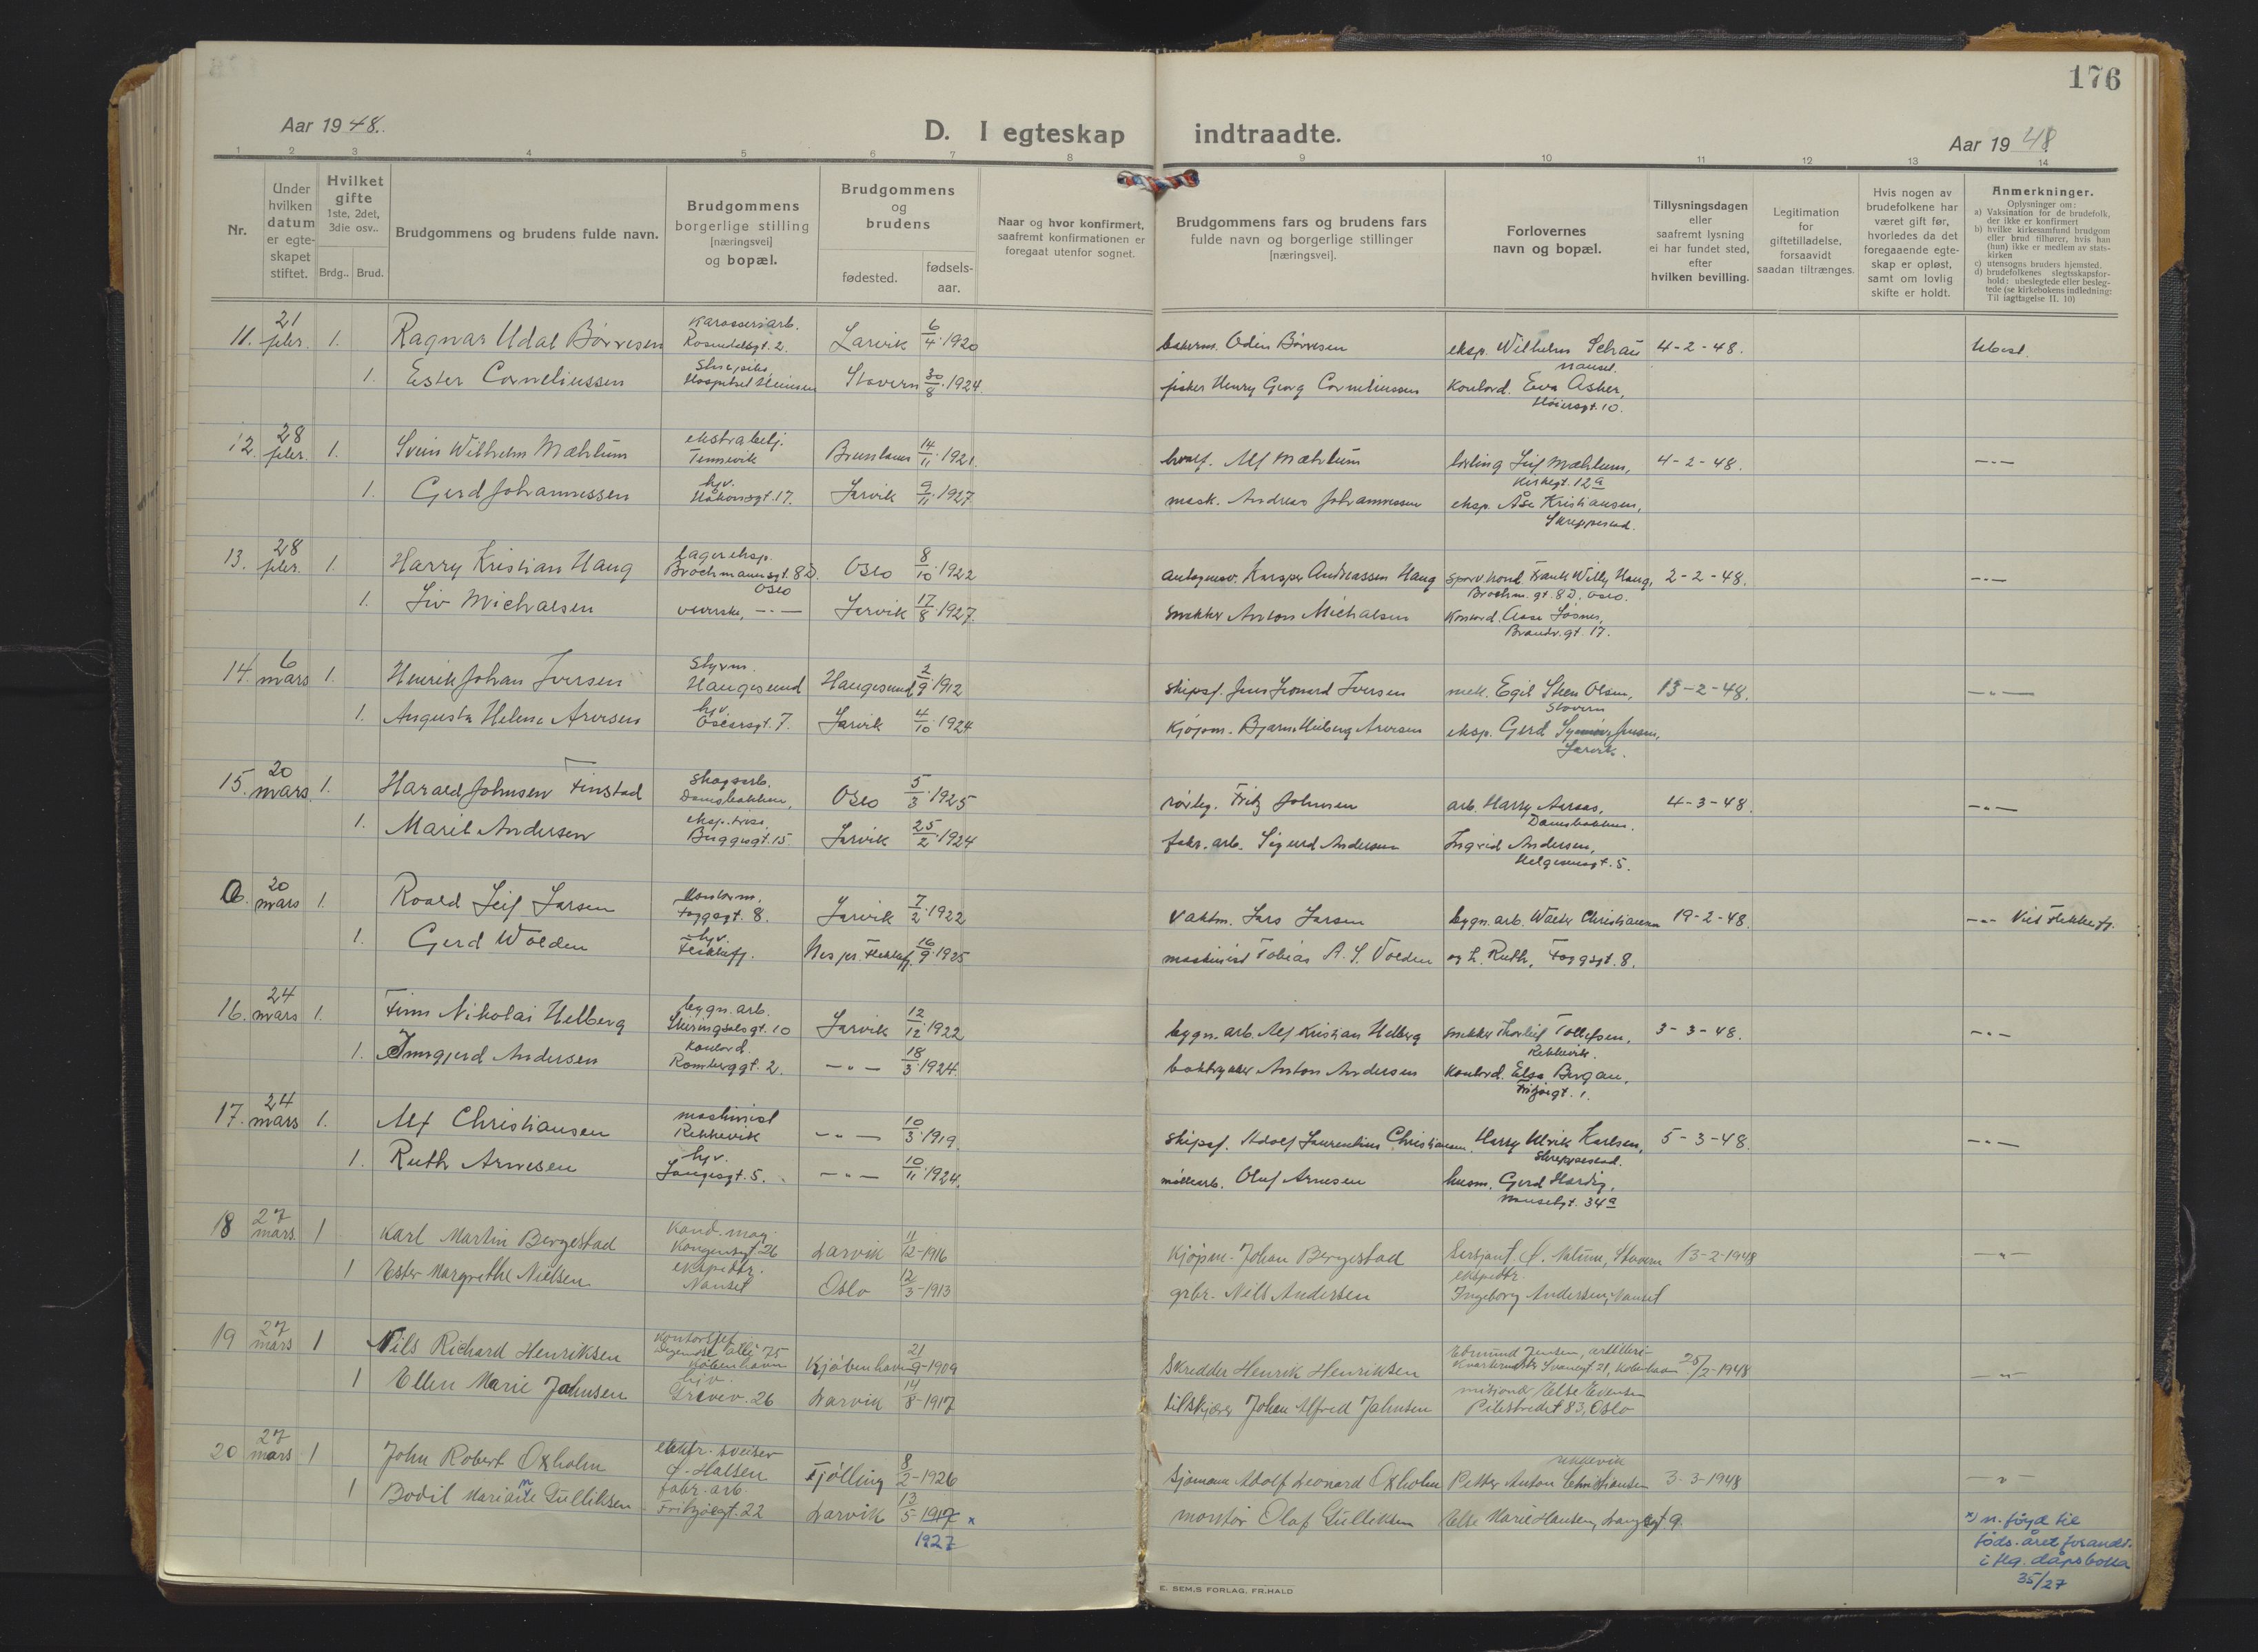 176
Aar 1948.
D. I egteskap indtraadte.
Aar 1948
1 2 3 4 5 6 7 8 9 10 11 12 13 14
Nr.
Under hvilken datum er egteskapet stiftet.
Hvilket gifte 1ste, 2det, 3die osv..
Brdg.. Brud.
Brudgommens og brudens fulde navn.
Brudgommens borgerlige stilling [næringsvei] og bopæl.
Brudgommens og brudens
fødested.
fødsels-aar.
Naar og hvor konfirmert, saafremt konfirmationen er foregaat utenfor sognet.
Brudgommens fars og brudens fars fulde navn og borgerlige stillinger [næringsvei].
Forlovernes navn og bopæl.
Tillysningsdagen eller saafremt lysning ei har fundet sted, efter hvilken bevilling.
Legitimation for giftetilladelse, forsaavidt saadan tiltrænges.
Hvis nogen av brudefolkene har været gift før, hvorledes da det foregaaende egteskap er opløst, samt om lovlig skifte er holdt.
Anmerkninger.
Oplysninger om:
a) Vaksination for de brudefolk, der ikke er konfirmert
b) hvilke kirkesamfund brudgom eller brud tilhører, hvis han (hun) ikke er medlem av statskirken
c) utensogns bruders hjemsted.
d) brudefolkenes slegtsskapsforhold: ubeslegtede eller beslegtede (se kirkebokens indledning: Til iagttagelse II. 10)
11. 21 febr. 1. Ragnar Udal Børresen Karosseriarb. Rosendalsgt. 2. Larvik 6/4 1920 Odin Børresen eksp. Wilhelm Schau Nanset. 4-2-48. Ubesl.
1. Ester Corneliussen Stavern 30/8 1924. fisker Henry Georg Corneliussen Kontord. Eva Asker, Høiersgt. 10.
12. 28 febr. 1. Svein Wilhelm Mæhlum ekstrabetj. Tennevik Brunlanes 14/11 1921. Alf Mæhlum Leif Mæhlum, Kirkegt. 12a 4-2-48. -"-
1. Gerd Johannessen hjv. Håkonsgt. 17. Larvik 9/11 1927 mask. Andreas Johannessen eksp. Åse Kristiansen, Skreppestad.
13. 28 febr. 1. Harry Kristian Haug lagereksp. Brochmannsgt. 8 D. Oslo Oslo 8/10 1922 Kasper Andreassen Haug Frank Willy Haug, Brochm. gt. 8 D. Oslo. 2-2-48. -"-
1. Liv Michalsen -"- Larvik 17/8 1927. snekker Anton Michalsen Kontord. Brandv. gt. 17.
14. 6 mars 1. Henrik Johan Iversen Styrm. Haugesund Haugesund 2/9 1912 skipsf. Jens Leonard Iversen mek. Egil Steen Olsen, Stavern 13-2-48. -"-
1. Augusta Helene Arvesen hjv. Oscarsgt. 7. Larvik 4/10 1924 Kjøpm. Bjarne Wiberg Arvesen eksp. Gerd Jensen, Larvik.
15. 20 mars. 1. Harald Johnsen Finstad skogsarb. Damsbakken, Oslo 5/3 1925 rørleg. Fritz Johnsen arb. Harry Damsbakken. 4-3-48. -"-
1. Marit Andersen Buggesgt. 15. Larvik 25/2 1924 fabr. arb. Sigurd Andersen Ingrid Andersen, Helgesensgt. 5.
a. 20 mars 1. Roald Leif Larsen Kontorm. Foggsgt. 8. Larvik 7/2 1922 vaktm. Lars Larsen bygn. arb. Walter Christiansen 19-2-48. -"- Viet Flekkefj.
1. Gerd Wolden hjv. Flekkefj. Nes pr. Flekkefj. 16/9 1925 maskinist Tobias A. S. Volden og h. Ruth, Foggsgt. 8.
16. 24 mars 1. Finn Nikolai Helberg bygn. arb. Skiringssalsgt. 10 Larvik 12/12 1922 bygn. arb. Alf Kristian Helberg snekker Thorleif Tollefsen, Rekkevik. 3-3-48. -"-
1. Inngjerd Andersen Kontord. Romberggt. 2. -"- 18/3 1924. boktrykker Anton Andersen Kontord. Elsa Bergan, Fritzøegt. 1.
17. 24 mars 1. Alf Christiansen maskinist Rekkevik -"- 10/3 1919. skipsf. Adolf Laurentius Christiansen. Harry Ulrik Karlsen, Skreppestad. 5-3-48. -"-
1. Ruth Arnesen hjv. Langesgt. 5. -"- 10/11 1924. møllearb. Oluf Arnesen husm. Gerd Hardig, Nansetgt. 34a
18 27 mars. 1 Karl Martin Bergestad Kand. mag. Kongensgt 26 Larvik 11/12-1916 Kjøpm. Johan Bergestad Sersjant Stavern 13-2-1948 -"-
1 Ester Margrethe Nielsen ekspedtr. Nanset Oslo 12/3-1913 grbr. Nils Andersen ekspedtr. Ingeborg Andersen, Nanset
19 27 mars 1 Nils Richard Henriksen Kontorsjef Allé 75 København Kjøbenhavn 21/9-1909 Skredder Henrik Henriksen Edmund Jensen, Svanegt. 21, København 25/2-1948 -"-
1 Ellen Marie Jahnsen hjv. Grevev. 26 Larvik 14/8-1917 tilskjærer Johan Alfred Jahnsen Else Evensen Pilestredet 83, Oslo
20 27 mars 1 John Robert Oxholm elektr. sveiser Ø. Halsen Tjølling 8/2-1926 Sjømann Adolf Leonard Oxholm Petter Anton Christiansen Rekkevik 3-3-1948 -"-
1 Bodil Mariane Gulliksen fabr. arb. Fritzøegt. 22 Larvik 13/5-1917 x 1927 montør Olaf Gulliksen Else Marie Hansen, Langesgt. 9.
x) n. føyd til føds. året forandr. i flg. dåpsboka 35/27
E. SEM,S FORLAG, FR.HALD